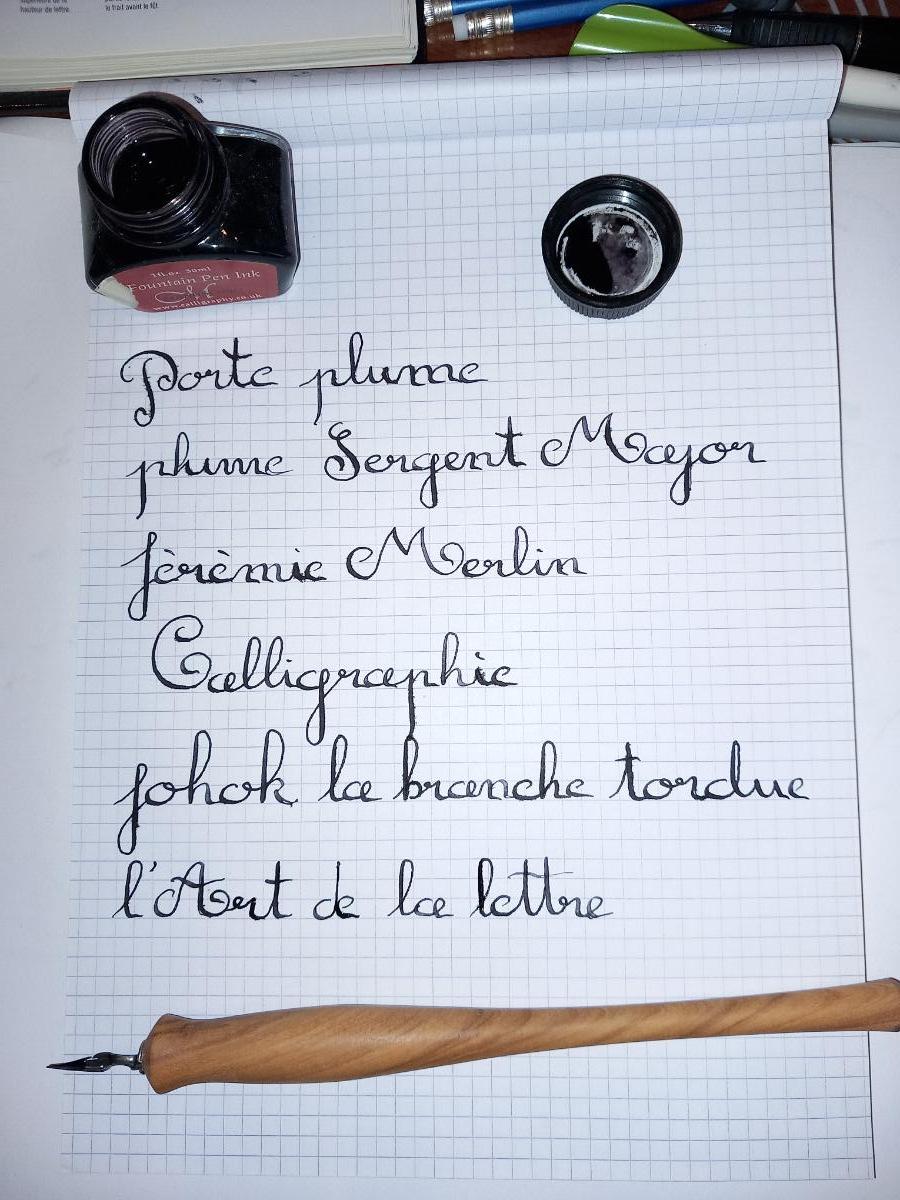 hauteur de lettre.
le trait avant le fût.
1fl.oz. 30ml
Fountain Pen Ink
www.calligraphy.co.uk
Porte plume
plume Sergent Major
jèrèmie Merlin
Calligraphie
johok la branche tordue
l'Art de la lettre